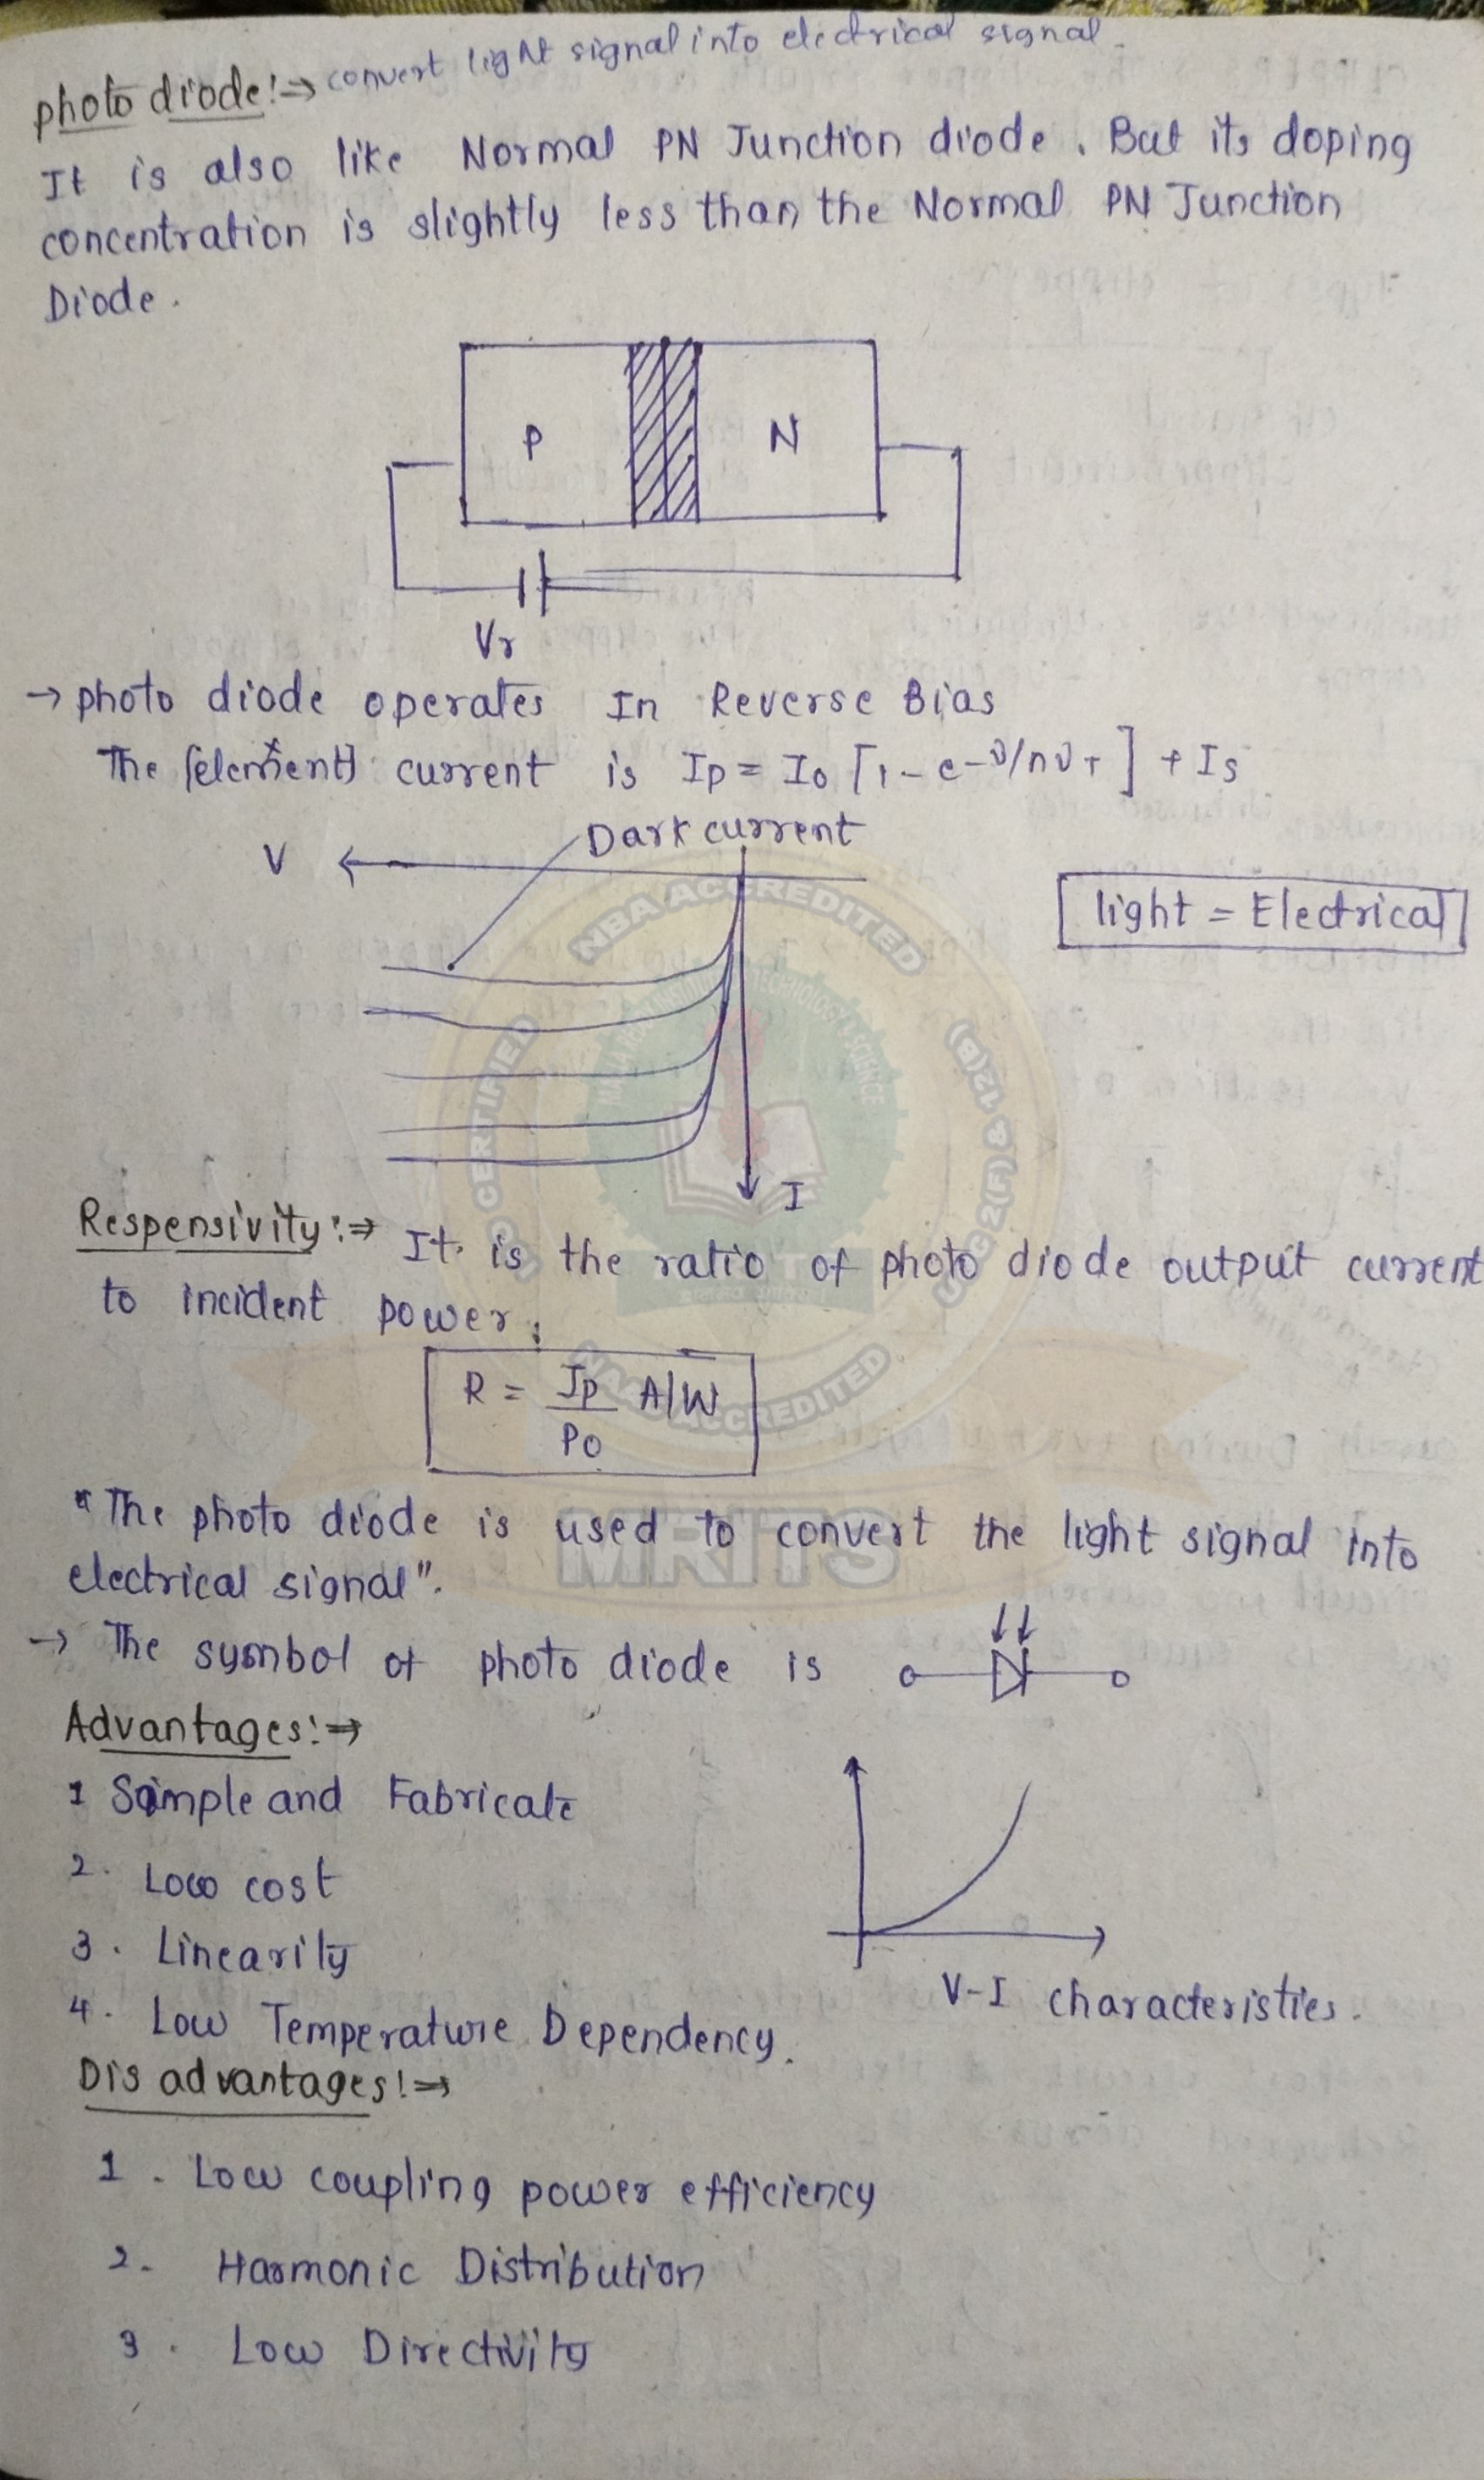 photo diode:⇒ convert light signal into electrical signal.
It is also like Normal PN Junction diode. But its doping
concentration is slightly less than the Normal PN Junction
Diode.
P N
Vr
→ photo diode operates In Reverse Bias
The current is Ip = Io [1-e-v/nvT] + Is
Dark current
V
light = Electrical
NBA ACCREDITED
I
Respensivity:⇒ It is the ratio of photo diode output current
to incident power.
R = Ip/Po A/W
NAAC ACCREDITED
MRITS
"The photo diode is used to convert the light signal into
electrical signal".
→ The symbol of photo diode is
Advantages:⇒
1 Simple and Fabricate
2. Low cost
3. Linearity
V-I characteristics.
4. Low Temperature Dependency.
Dis advantages:⇒
1. Low coupling power efficiency
2. Harmonic Distribution
3. Low Directivity